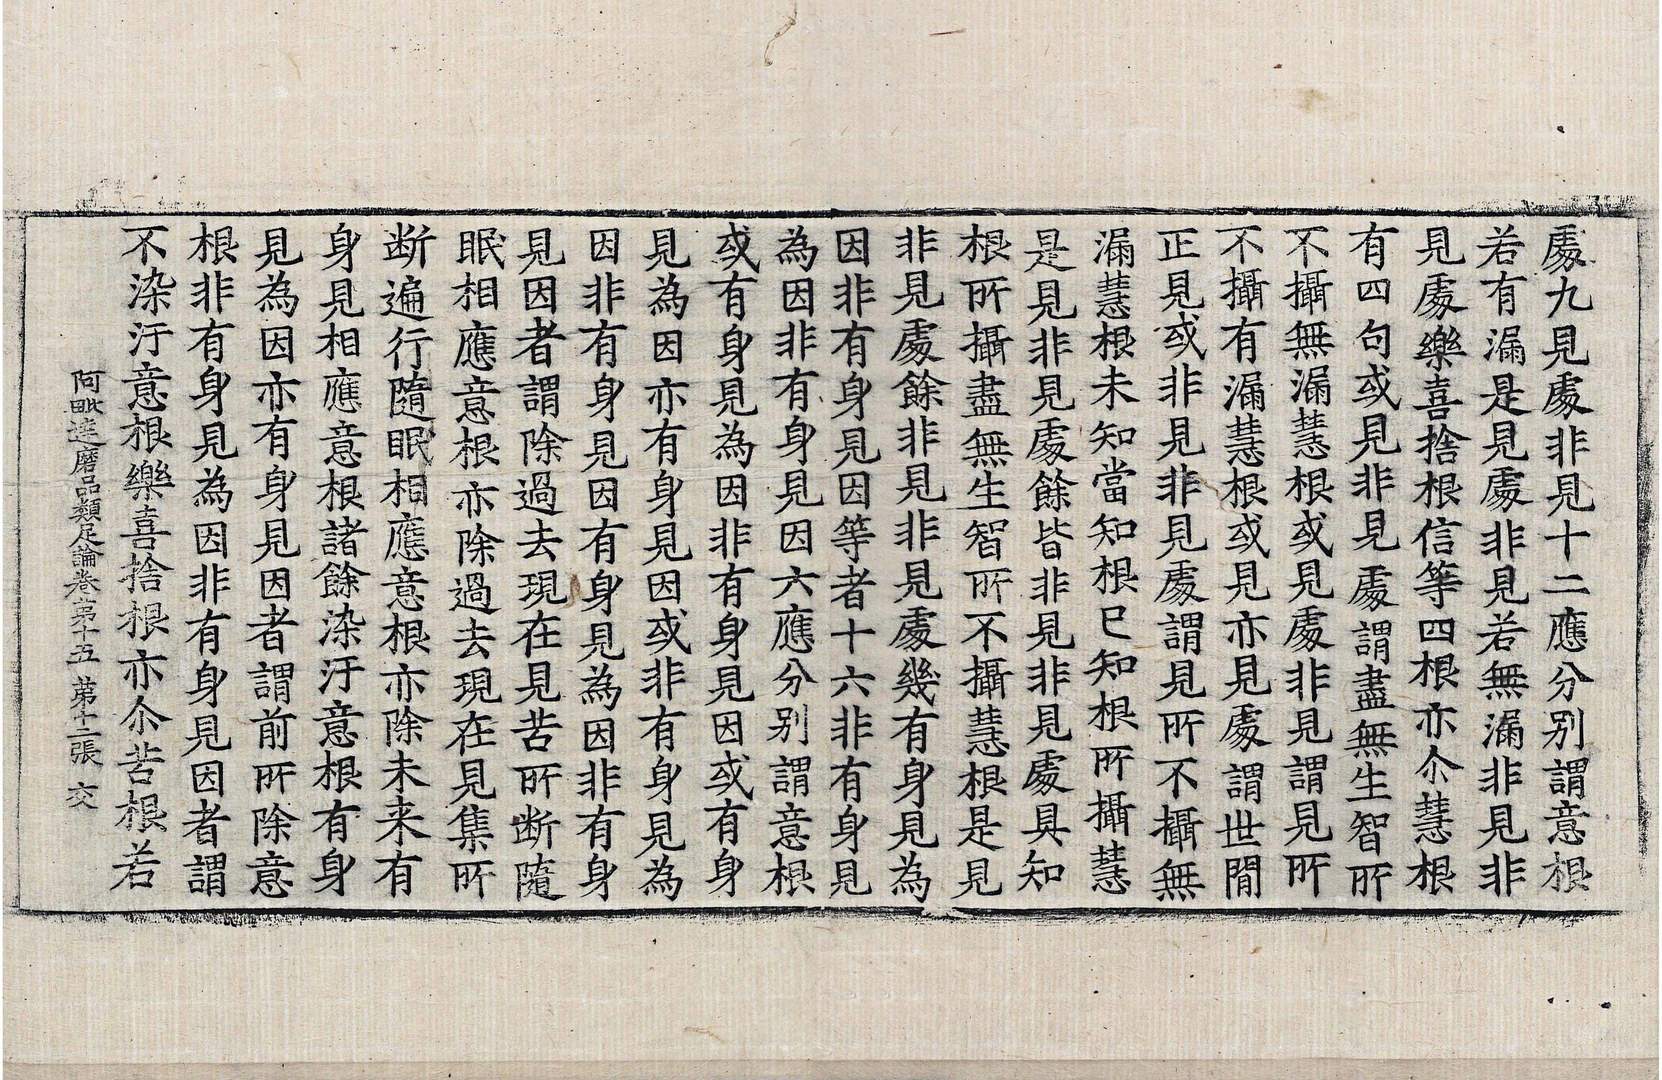 處九見處非見十二應分別謂意根
若有漏是見處非見若無漏非見非
見處樂喜捨根信等四根亦尒慧根
有四句或見非見處謂盡無生智所
不攝無漏慧根或見處非見謂見所
不攝有漏慧根或見亦見處謂世間
正見或非見非見處謂見所不攝無
漏慧根未知當知根已知根所攝慧
是見非見處餘皆非見非見處具知
根所攝盡無生智所不攝慧根是見
非見處餘非見非見處幾有身見為
因非有身見因等者十六非有身見
為因非有身見因六應分別謂意根
或有身見為因非有身見因或有身
見為因亦有身見因或非有身見為
因非有身見因有身見為因非有身
見因者謂除過去現在見苦所断隨
眠相應意根亦除過去現在見集所
断遍行隨眠相應意根亦除未来有
身見相應意根諸餘染汙意根有身
見為因亦有身見因者謂前所除意
根非有身見為因非有身見因者謂
不染汙意根樂喜捨根亦尒苦根若
阿毗達磨品類足論卷第十五 第十二張 交